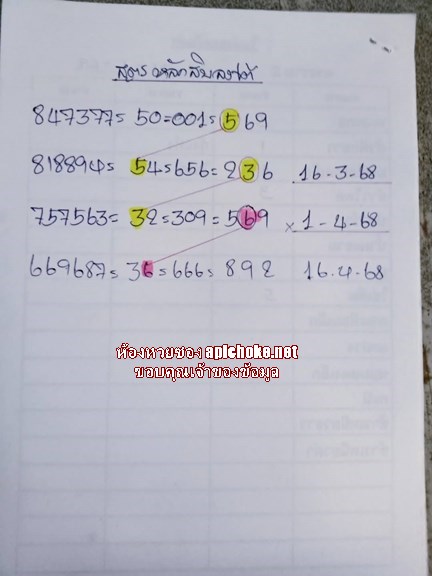 สูตรหลักสิบล่าง
847377= 50=001= 569
818894= 54=656= 236 16-3-68
757563= 32=309= 569 × 1-4-68
669687= 36=666= 892 16-4-68
ห้องหวยซอง apichoke.net
ขอบคุณเจ้าของข้อมูล